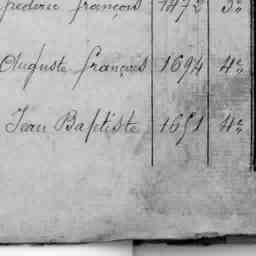 frederic françois 1472 3e
Auguste françois 1694 4e
Jean Baptiste 1651 4e